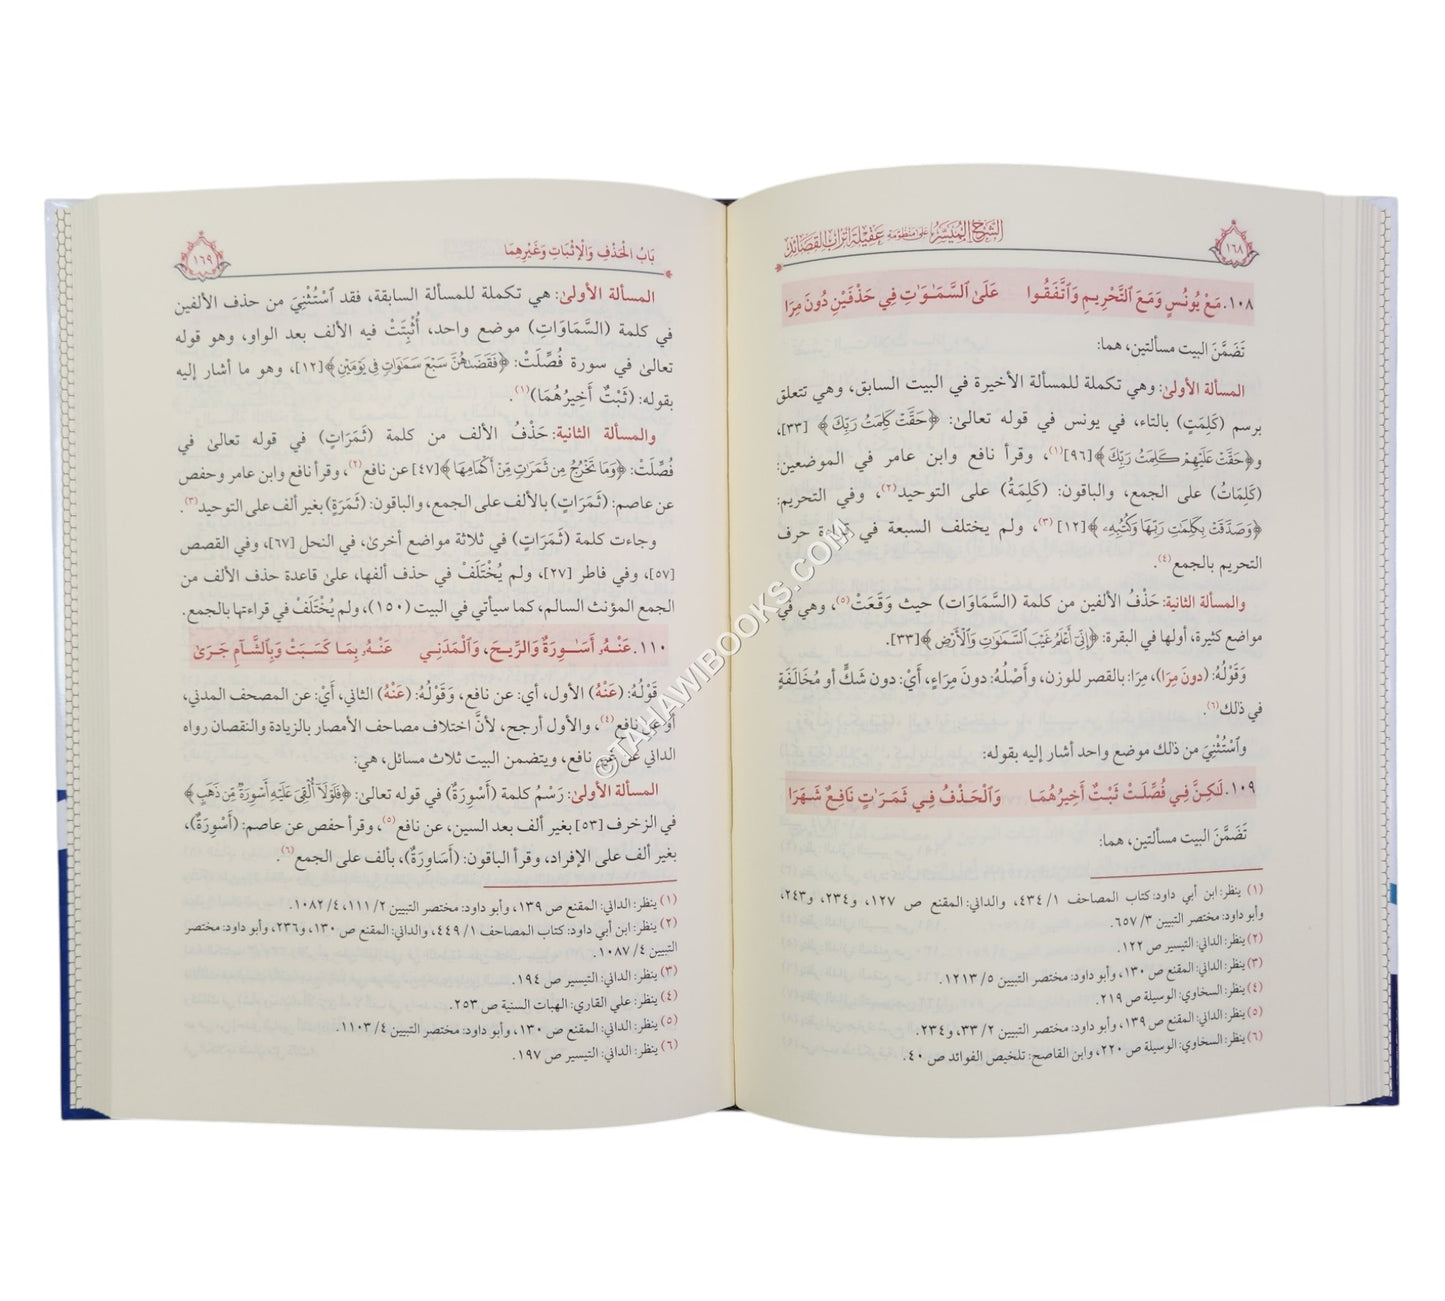 ١٦٨
الشرح الميسر على منظومة عقيلة أتراب القصائد
١٠٨. مَعْ يُونُسٍ وَمَعَ ٱلتَّحْرِيمِ وَٱتَّفَقُوا عَلَى ٱلسَّمَـٰوَٰتِ فِي حَذْفَيْنِ دُونَ مِرَا
تَضَمَّنَ البيت مسألتين، هما:
المسألة الأولىٰ: وهي تكملة للمسألة الأخيرة في البيت السابق، وهي تتعلق
برسم (كَلِمَتٍ) بالتاء، في يونس في قوله تعالىٰ: ﴿حَقَّتْ كَلِمَتُ رَبِّكَ﴾ [٣٣]،
و﴿حَقَّتْ عَلَيْهِمْ كَلِمَتُ رَبِّكَ﴾[٩٦](١)، وقرأ نافع وابن عامر في الموضعين:
(كَلِمَاتُ) على الجمع، والباقون: (كَلِمَةُ) على التوحيد(٢)، وفي التحريم:
﴿وَصَدَّقَتْ بِكَلِمَٰتِ رَبِّهَا وَكُتُبِهِۦ﴾[١٢] (٣)، ولم يختلف السبعة في تلاوة حرف
التحريم بالجمع(٤).
والمسألة الثانية: حَذْفُ الألفين من كلمة (السَّمَاوَات) حيث وَقَعَتْ(٥)، وهي في
مواضع كثيرة، أولها في البقرة: ﴿إِنِّيٓ أَعْلَمُ غَيْبَ ٱلسَّمَٰوَٰتِ وَٱلْأَرْضِ﴾[٣٣].
وَقَوْلُهُ: (دونَ مِرَا)، مِرَا: بالقصر للوزن، وأصْلُهُ: دونَ مِرَاءٍ، أَيْ: دون شَكٍّ أو مُخَالَفَةٍ
في ذلك(٦).
وٱسْتُثْنِيَ من ذلك موضع واحد أشار إليه بقوله:
١٠٩. لَـٰكِنَّ فِي فُصِّلَتْ ثَبْتٌ أَخِيرُهُمَـا وَٱلْحَذْفُ فِـي ثَمَرَٰتٍ نَافِعٌ شَهَرَا
تَضَمَّنَ البيت مسألتين، هما:
(١) ينظر: ابن أبي داود: كتاب المصاحف ١/ ٤٣٤، والداني: المقنع ص ١٢٧، و٢٣٤، و٢٤٣،
وأبو داود: مختصر التبيين ٣/ ٦٥٧.
(٢) ينظر: الداني: التيسير ص ١٢٢.
(٣) ينظر: الداني: المقنع ص ١٣٠، وأبو داود: مختصر التبيين ٥/ ١٢١٣.
(٤) ينظر: السخاوي: الوسيلة ص ٢١٩.
(٥) ينظر: الداني: المقنع ص ١٣٩، وأبو داود: مختصر التبيين ٢/ ٣٣، و٢٣٤.
(٦) ينظر: السخاوي: الوسيلة ص ٢٢٠، وابن القاصح: تلخيص الفوائد ص ٤٠.
بَابُ الْحَذْفِ وَالْإِثْبَاتِ وَغَيْرِهِمَا
١٦٩
المسألة الأولىٰ: هي تكملة للمسألة السابقة، فقد ٱسْتُثْنِيَ من حذف الألفين
في كلمة (السَّمَاوَاتِ) موضع واحد، أُثْبِتَتْ فيه الألف بعد الواو، وهو قوله
تعالىٰ في سورة فُصِّلَتْ: ﴿فَقَضَىٰهُنَّ سَبْعَ سَمَٰوَاتٍ فِي يَوْمَيْنِ﴾[١٢]، وهو ما أشار إليه
بقوله: (ثَبْتٌ أَخِيرُهُمَا)(١).
والمسألة الثانية: حَذْفُ الألف من كلمة (ثَمَرَاتٍ) في قوله تعالىٰ في
فُصِّلَتْ: ﴿وَمَا تَخْرُجُ مِن ثَمَرَٰتٍ مِّنْ أَكْمَامِهَا﴾[٤٧] عن نافع(٢)، وقرأ نافع وابن عامر وحفص
عن عاصم: (ثَمَرَاتٍ) بالألف على الجمع، والباقون: (ثَمَرَةٍ) بغير ألف على التوحيد(٣).
وجاءت كلمة (ثَمَرَاتٍ) في ثلاثة مواضع أخرىٰ، في النحل [٦٧]، وفي القصص
[٥٧]، وفي فاطر [٢٧]، ولم يُخْتَلَفْ في حذف ألفها، علىٰ قاعدة حذف الألف من
الجمع المؤنث السالم، كما سيأتي في البيت (١٥٠)، ولم يُخْتَلَفْ في قراءتها بالجمع.
١١٠. عَنْـهُۥ أَسَـٰوِرَةٌ وَٱلرِّيـحَ، وَٱلْمَدَنِـي عَنْـهُۥ بِمَـا كَسَبَـتْ وَبِٱلشَّـآمِ جَـرَىٰ
قَوْلُهُ: (عَنْهُ) الأول، أي: عن نافع، وَقَوْلُهُ: (عَنْهُ) الثاني، أَيْ: عن المصحف المدني،
أو عن نافع(٤)، والأول أرجح، لأنَّ اختلاف مصاحف الأمصار بالزيادة والنقصان رواه
الداني عن غير نافع، ويتضمن البيت ثلاث مسائل، هي:
المسألة الأولىٰ: رَسْمُ كلمة (أَسْوِرَةٌ) في قوله تعالىٰ: ﴿فَلَوْلَآ أُلْقِيَ عَلَيْهِ أَسْوِرَةٌ مِّن ذَهَبٍ﴾
في الزخرف [٥٣] بغير ألف بعد السين، عن نافع(٥)، وقرأ حفص عن عاصم: (أَسْوِرَةٌ)،
بغير ألف على الإفراد، وقرأ الباقون: (أَسَاوِرَةٌ)، بألف على الجمع(٦).
(١) ينظر: الداني: المقنع ص ١٣٩، وأبو داود: مختصر التبيين ٢/ ١١١، ٤/ ١٠٨٢.
(٢) ينظر: ابن أبي داود: كتاب المصاحف ١/ ٤٤٩، والداني: المقنع ص ١٣٠، و٢٣٦، وأبو داود: مختصر
التبيين ٤/ ١٠٨٧.
(٣) ينظر: الداني: التيسير ص ١٩٤.
(٤) ينظر: علي القاري: الهبات السنية ص ٢٥٣.
(٥) ينظر: الداني: المقنع ص ١٣٠، وأبو داود: مختصر التبيين ٤/ ١١٠٣.
(٦) ينظر: الداني: التيسير ص ١٩٧.
©TAHAWIBOOKS.COM